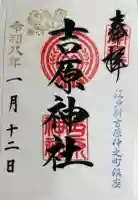 奉拝
江戸新吉原仲之町鎮座
吉原神社
令和八年
一月十二日